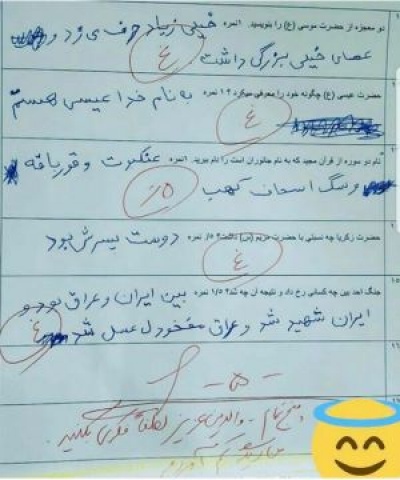 دو معجزه از حضرت موسی (ع) را بنویسید. ۱نمره خیلی زیاد حرف می زد و
عصای خیلی بزرگی داشت. غ
حضرت عیسی (ع) چگونه خود را معرفی میکرد؟ ۱ نمره به نام خدا عیسی هستم
غ
نام دو سوره از قرآن مجید که به نام جانوران است را نام ببرید. ۱نمره عنکبوت و قورباقه
و سگ اسحاب کهب ۵/.
حضرت زکریا چه نسبتی با حضرت مریم (س) داشت؟ ۵/. نمره دوست پسرش بود
غ
جنگ احد بین چه کسانی رخ داد و نتیجه آن چه شد؟ ۱/۵ نمره بین ایران و عراق بود و
ایران شهید شد و عراق مفخود ل عسل شد غ
۱۶
-۵-
والدین عزیز لطفاً فکری بکنید.